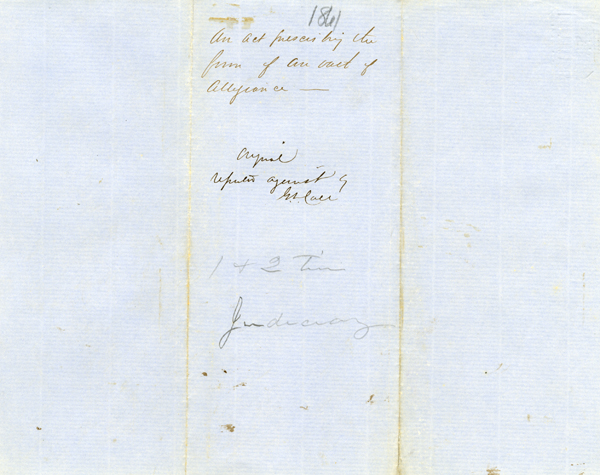 184
An act prescribing the
form of an oath of
Allegiance —
reported against
1 & 2 Tim
Judiciary